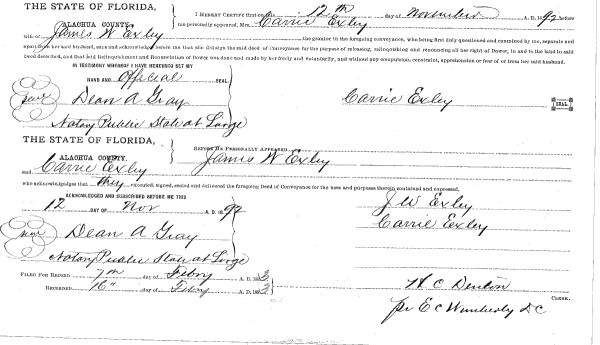 THE STATE OF FLORIDA,
ALACHUA COUNTY.
I HEREBY CERTIFY that on this 12th day of November A. D. 1892 before
me personally appeared, Mrs. Carrie Exley
wife of James W Exley the grantor in the foregoing conveyance, who being first duly questioned and examined by me, separate and
apart from her said husband, says and acknowledges before me that she did sign the said deed of Conveyance for the purpose of releasing, relinquishing and renouncing all her right of Dower, in and to the land in said
Deed described, and that said Relinquishment and Renunciation of Dower was done and made by her freely and voluntarily, and without any compulsion, constraint, apprehension or fear of or from her said husband.
IN TESTIMONY WHEREOF I HAVE HEREUNTO SET MY
HAND AND Official SEAL.
Seal Dean A Gray
Carrie Exley SEAL
Notary Public State at Large
THE STATE OF FLORIDA,
ALACHUA COUNTY.
BEFORE ME PERSONALLY APPEARED James W Exley
and Carrie Exley
who acknowledged that they executed, signed, sealed and delivered the foregoing Deed of Conveyance for the uses and purposes therein contained and expressed.
ACKNOWLEDGED AND SUBSCRIBED BEFORE ME THIS
12 DAY OF Nov A. D. 1892
J W Exley
Carrie Exley
Seal Dean A Gray
Notary Public State at Large
FILED FOR RECORD 7th day of Febry A. D. 1893
RECORDED 16" day of Febry A. D. 1893
H C Denton CLERK.
pr E C Wimberly D C